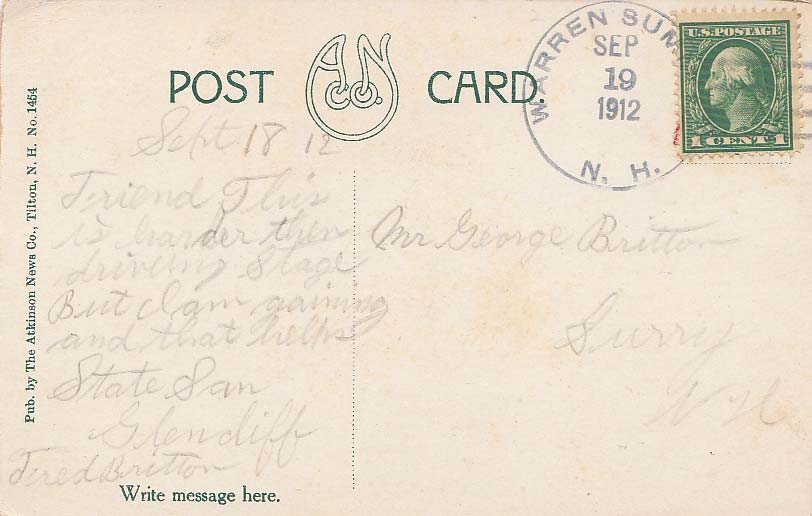 POST CARD.
A N Co.
WARREN SUM
SEP
19
1912
N. H.
U.S. POSTAGE
1 CENT 1
Pub. by The Atkinson News Co., Tilton, N. H. No. 1454
Sept 18 12
Friend This
is harder then
driveing Stage
But I am gaining
and that helps
State San
Glencliff
Fred Britton
Mr George Britton
Surry
N H
Write message here.